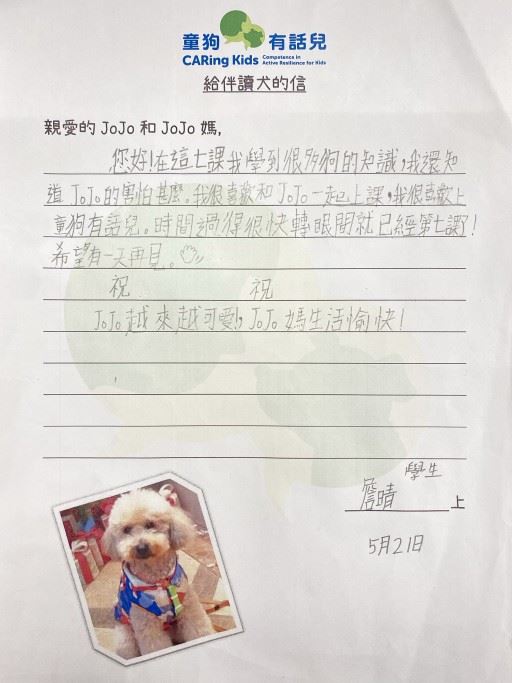 童狗有話兒
CARing Kids Competence in
Active Resilience for Kids
給伴讀犬的信
親愛的 JoJo 和 JoJo 媽,
您好!在這七課我學到很多狗的知識,我還知
道 JoJo 的害怕甚麼。我很喜歡和 JoJo 一起上課,我很喜歡上
童狗有話兒。時間過得很快轉眼間就已經第七課了!
希望有一天再見。
祝 祝
JoJo 越來越可愛, JoJo 媽生活愉快!
學生
詹晴 上
5月21日